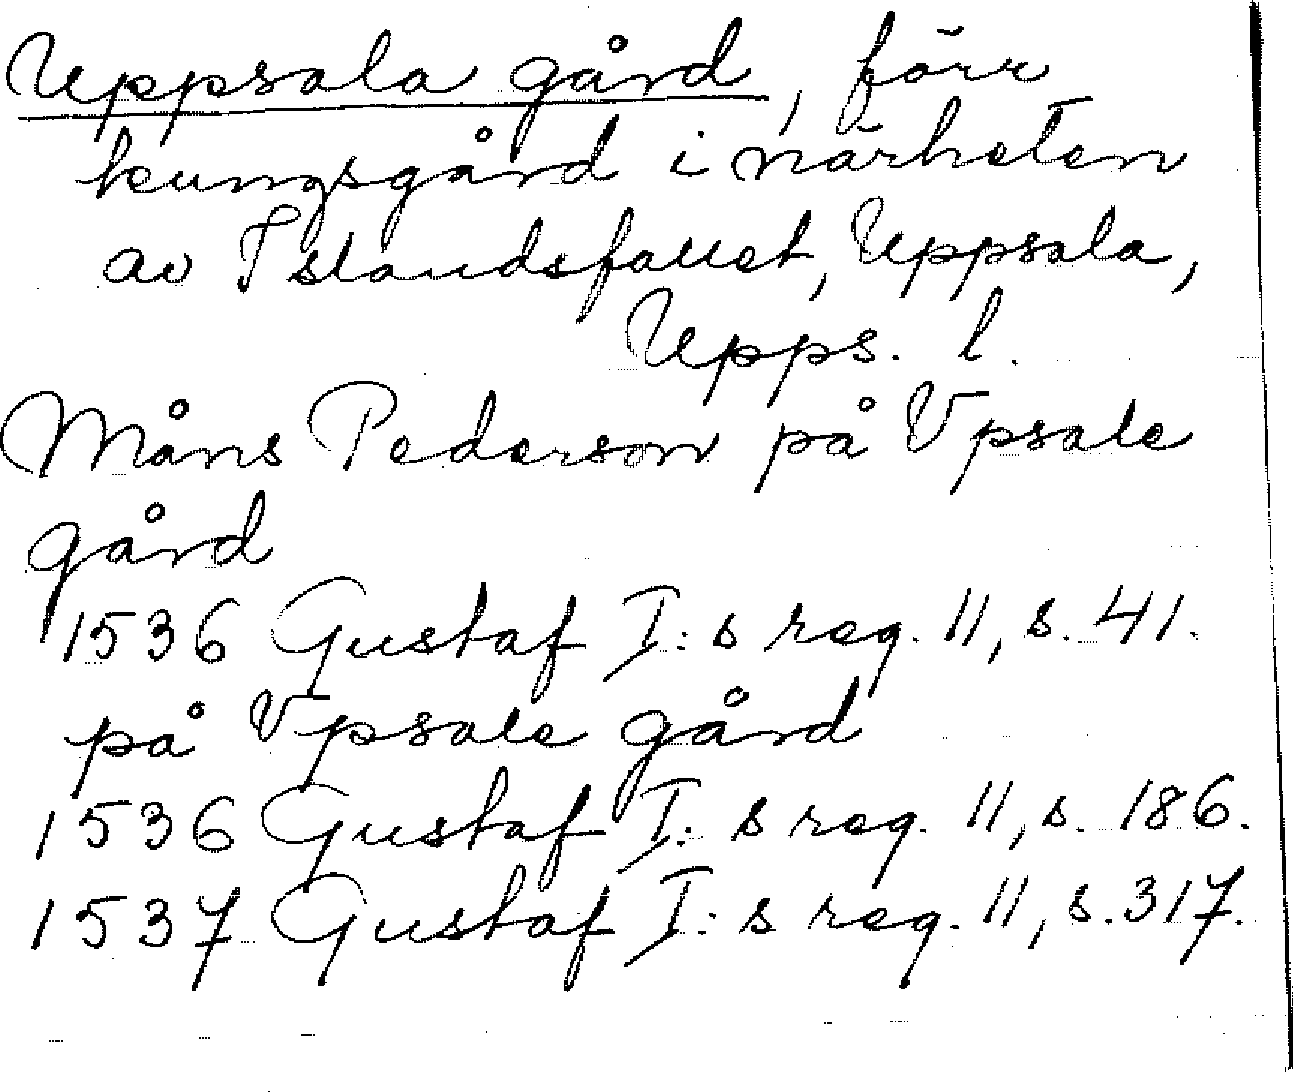 Uppsala gård, förr
kungsgård i närheten
av Islandsfallet, Uppsala,
Upps. l.
Måns Pederson på Vpsale
gård
1536 Gustaf I:s reg. 11, s. 41.
på Vpsale gård
1536 Gustaf I:s reg. 11, s. 186.
1537 Gustaf I:s reg. 11, s. 317.